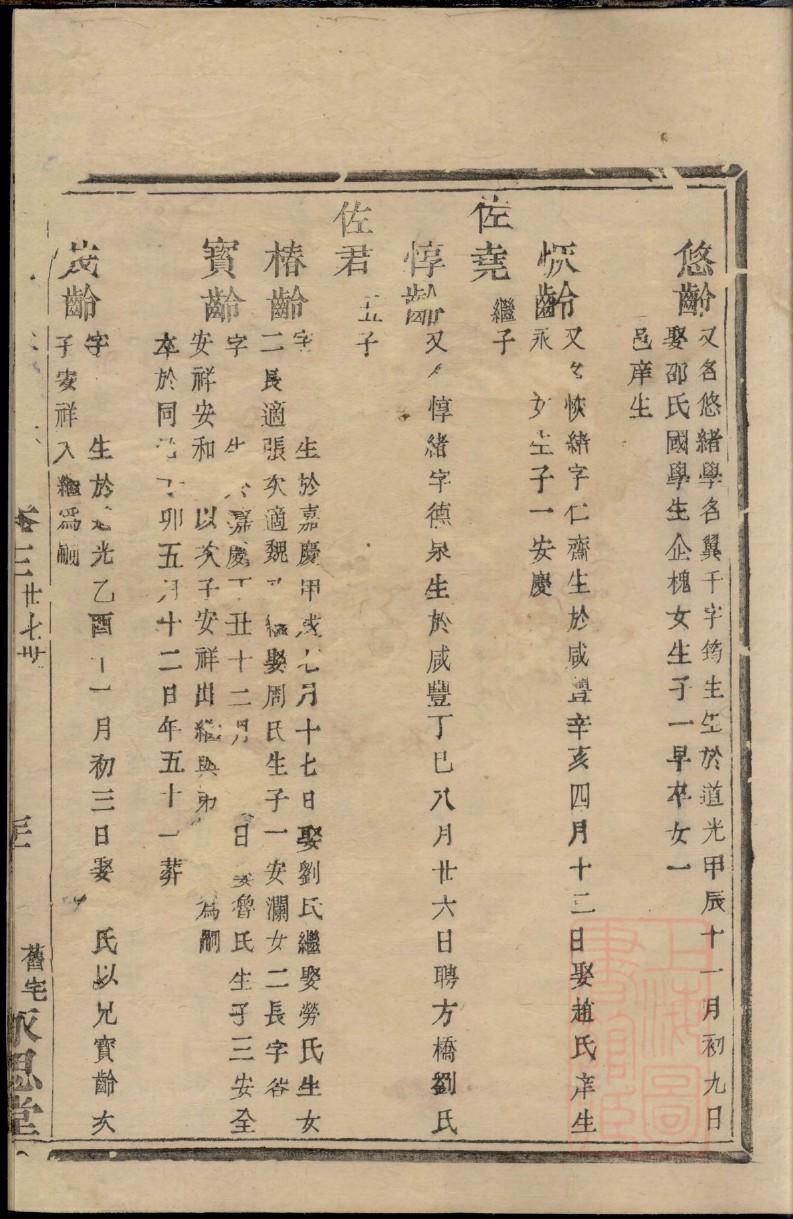 悠齡
又名悠緒學名翼千字筠生生於道光甲辰十一月初九日
娶邵氏國學生企槐女生子一早卒女一
邑庠生
恢齡
又名恢緒字仁齋生於咸豐辛亥四月十二日娶趙氏庠生
永 女生子一安慶
佐堯 繼子
惇齡
又 惇緒字德泉生於咸豐丁巳八月廿六日聘方橋劉氏
佐君 五子
椿齡
字 生於嘉慶甲戌七月十七日娶劉氏繼娶勞氏生女
二長適張次適魏 繼娶周氏生子一安瀾女二長字谷
寳齡
字 生 嘉慶丁丑十二月 日娶魯氏生子三安全
安祥安和 以次子安祥出繼與弟 為嗣
卒於同治丁卯五月十二日年五十一葬
茂齡
字 生於道光乙酉十一月初三日娶 氏以兄寳齡次
子安祥入繼為嗣
卷三 廿七世
舊宅永思堂
上海圖書館藏